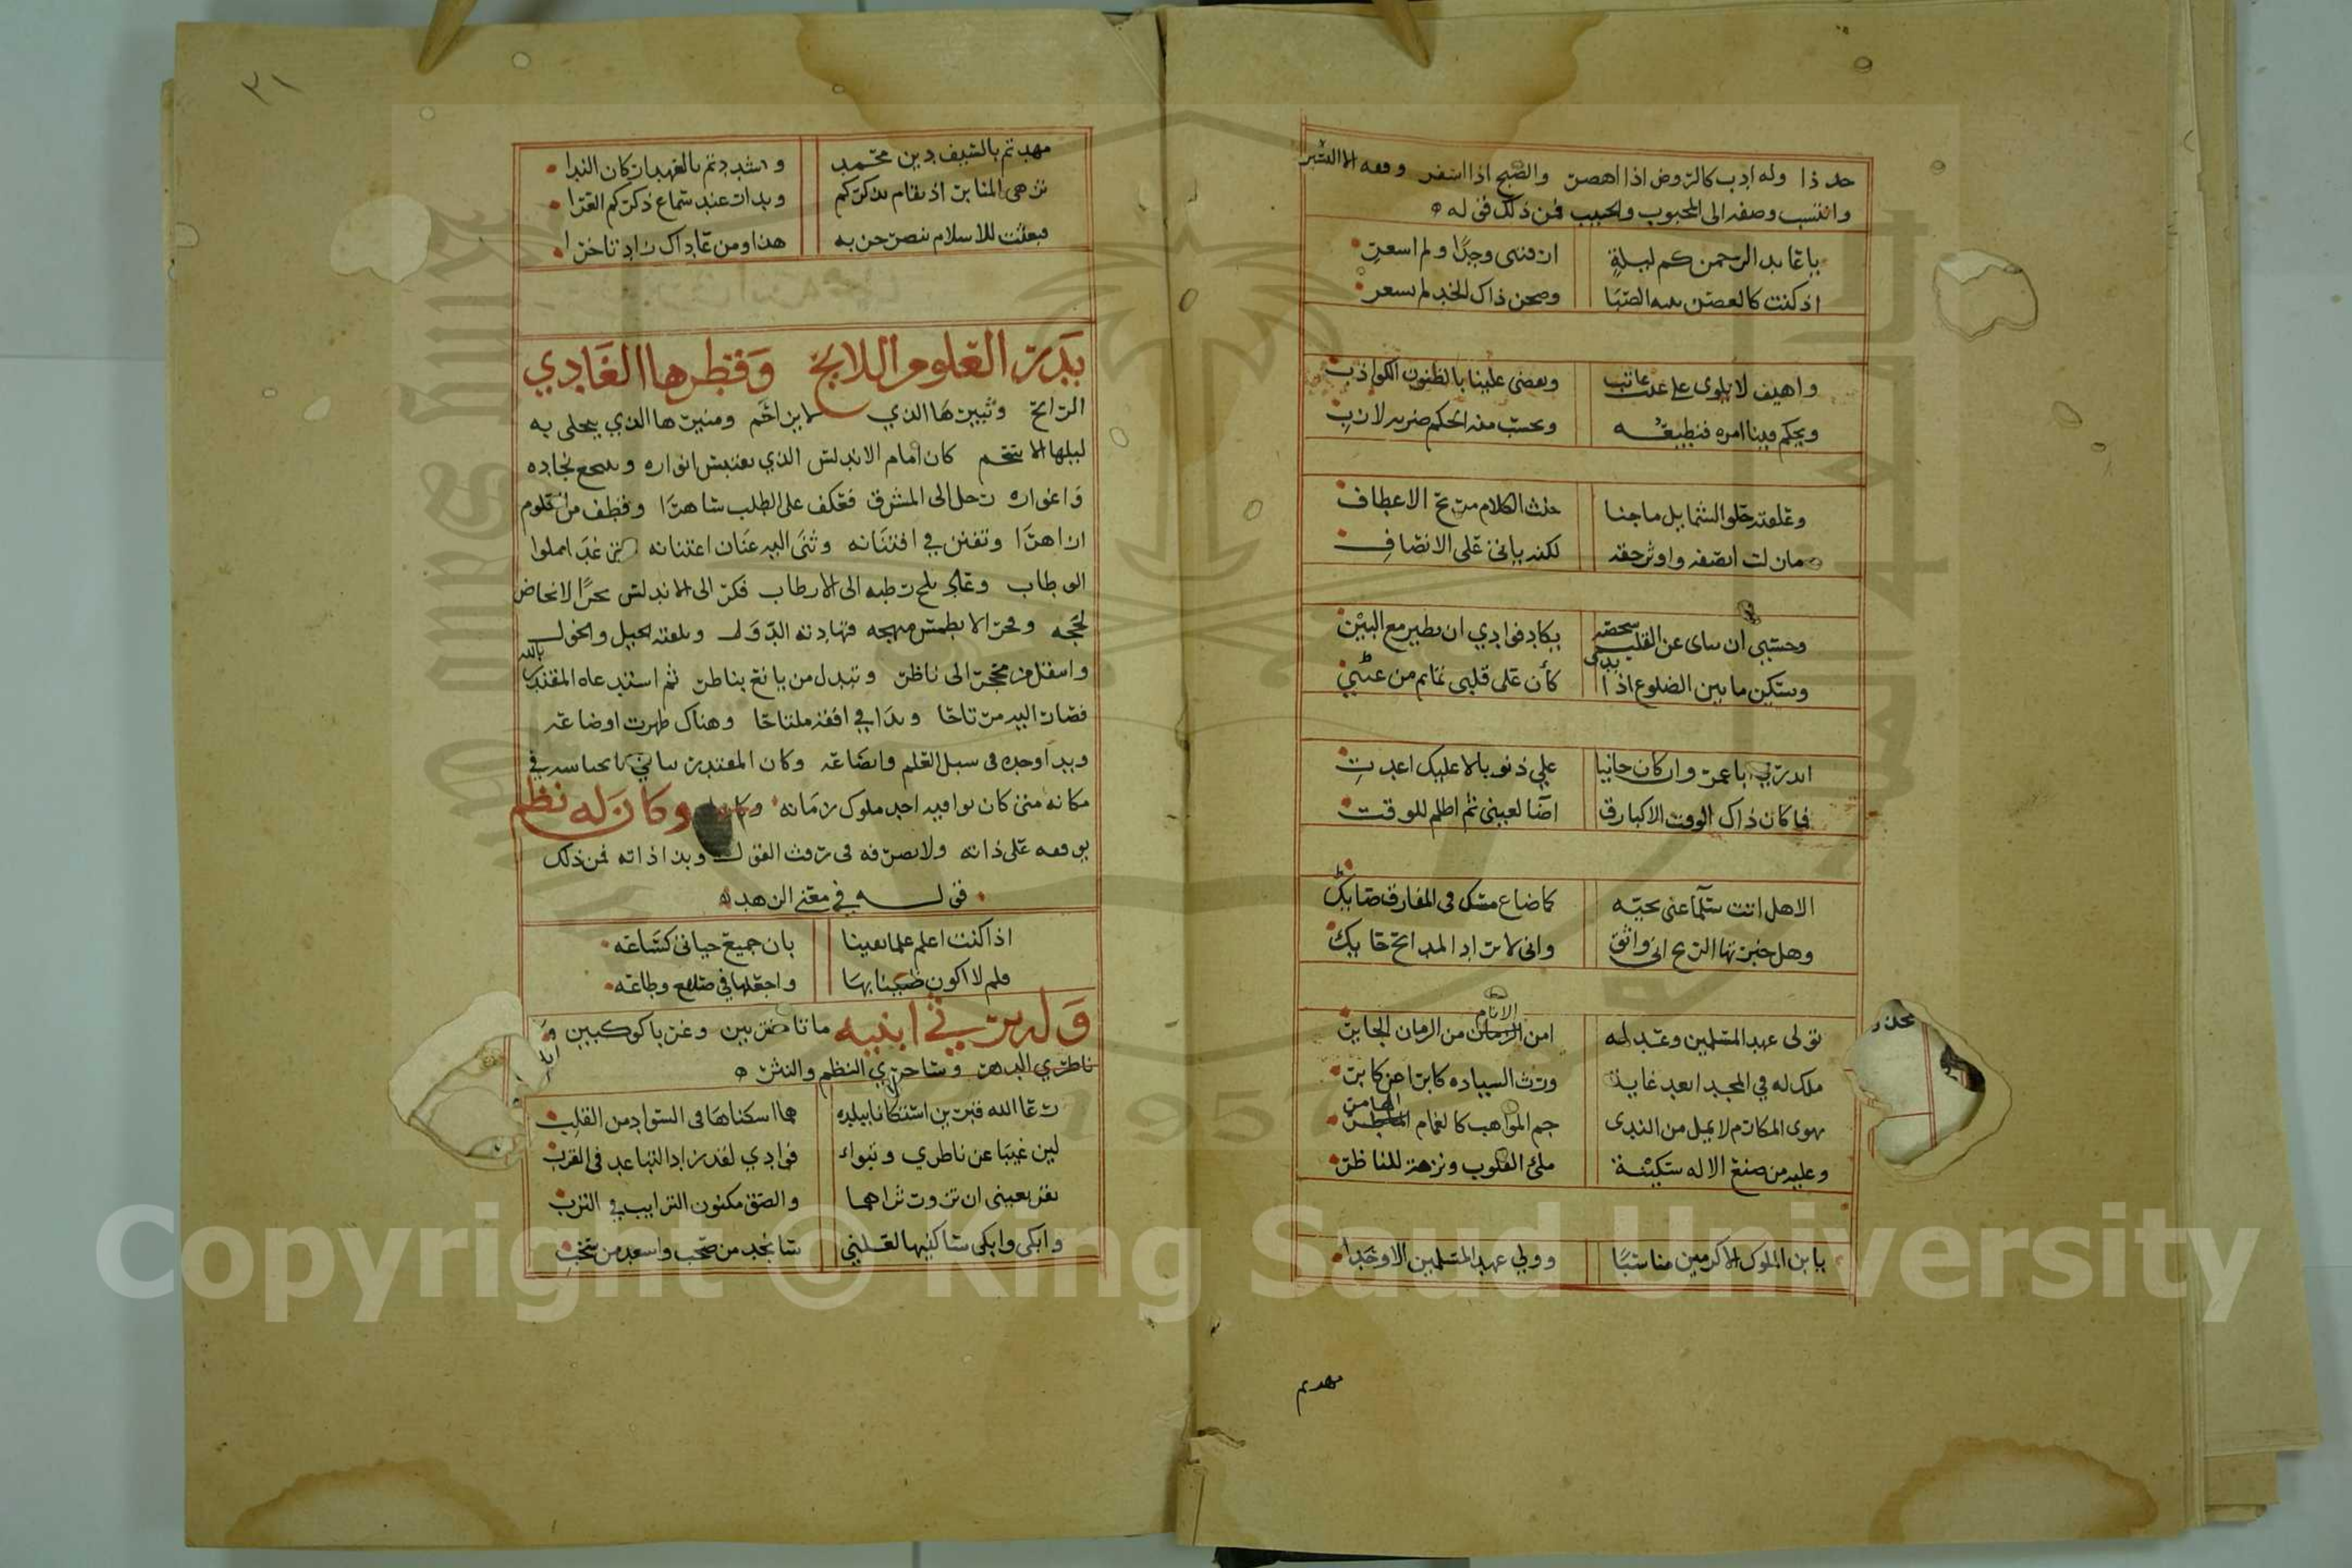 حد ذا وله ادب كالروض اذا اهصر والصبح اذا اسفر وقعه الا السير
وانتسب وصفه الى المحبوب والحبيب فمن ذلك قوله
يا عابد الرحمن كم ليلةٍ ارقتنى وجدًا ولم اسعرِ
اذ كنت كالغصن الصبَا وصحن ذاك الخد لم يسعر
واهيف لا يلوى على عتب عاتب ويقضى علينا بالظنون الكواذب
ويحكم فينا امره فنطيعه ويحسب منه الحكم ضربه لازبِ
وعلقته حلو الشمايل ماجنا خنث الكلام مرنح الاعطاف
مازلت انصفه واوثر حقه لكنه يابى على الانصاف
وحسبي ان ساى عن القلب شخصه يكاد فوادي ان يطير مع البيْن
ويسكن ما بين الضلوع اذا بدى كأن على قلبى تمايم من عيني
ابدرتي يا عمرو وان كان جانيا علي ذنوبا لا عليك اعدتِ
فما كان ذاك الوقت الا كبارق اضآ لعينى ثم اظلم للوقت
الا هل انت سلمًا عنى تحيه كما ضاع مسك فى المفارق صايك
وهل خبرتها الريح انى واثق وانى لا براد المدايح حايك
تولى عهد المسلمين وعبد له امن الزمان الانام من الزمان الجاير
ملك له في المجد ابعد غاية ورث السياده كابرا عن كابر
يهوى المكارم لا يمل من الندى جم المواهب كالغمام الماطر الهامر
وعليه من صنع الاله سكينة ملئ القلوب ونزهة للناظر
يا بن الملوك الاكرمين مناسبًا وولي عهد المسلمين الاوحدا
مهدتم
٣١
مهدتم بالسيف دين محمد وشددتم بالعهد اركان الندا
تزهى المنابر اذ يقام بذكركم وبدات عند سماع ذكركم العدا
فبعثت للاسلام تنصر حزبه هذا ومن عاداك زاد تاخرا
بدر العلوم اللايح وقطرها الغادي
الرايح وثبيرها الذي لا يزاحم ومنيرها الذي ينجلى به
ليلها الاسحم كان امام الاندلس الذي تقتبس انواره وينتجع نجاده
واغواره رحل الى المشرق فعكف على الطلب ساهرا وقطف من العلوم
ازاهرا وتفنن في افتنانه وثنى اليه عنان اعتنانه حتى غدا مملوا
الوطاب وعاد بلح رطبه الى الارطاب فكر الى الاندلس بحرًا لا تخاض
لججه وفجرا لا يطمس منهجه فتهادته الدول وتلقته الخيل والخول
وانتقل من محجر الى ناظر وتبدل من يانع بناطر ثم استدعاه المقتدر بالله
فصار اليه مرتاحا وبدا في افقه ملتاحا وهناك ظهرت اوضاعه
وبدا وخده فى سبل العلم وايضاعه وكان المقتدر يباهي بانحياشه في
مكانه متى كان يوافيه احد ملوك زمانه وكان له نظم
يوقفه على ذاته ولا يصرفه فى رفث القول وبذاذاته فمن ذلك
قوله في معنى الزهد
اذا كنت اعلم علما يقينا بان جميع حياتى كساعه
فلم لا اكون ضنينا بها واجعلها في صلاح وطاعه
وله يرثي ابنيه ماتا مغتربين وغربا كوكبين وكانا
ناظري الدهر وساحري النظم والنثر
رعا الله قبرين استكانا ببلده هما اسكناها فى السواد من القلب
لين غيبا عن ناظري وتبواء فوادي لقد زاد التباعد فى القرب
يقر بعينى ان ازور ثراهما والصق مكنون الترايب في الترب
وابكى وابكى ساكنيها لعلني سانجد من صحب واسعد من سحب